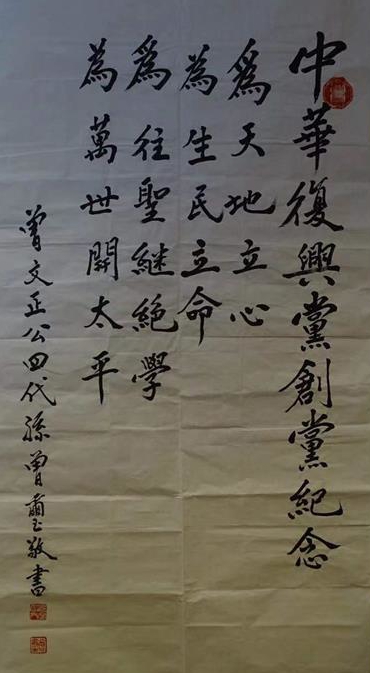 中華復興黨創黨紀念
爲天地立心
為生民立命
爲往聖継絶學
為萬世開太平
曾文正公四代孫曾爾玉敬書